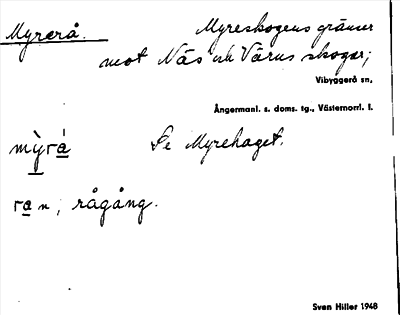 Myrerå.
Myreskogens gränser
mot Näs och Värns skogar;
Vibyggerå sn,
Ångermanl. s. doms. tg., Västernorrl. l.
mỳrá Se Myrehaget.
ran, rågång.
Sven Hiller 1948